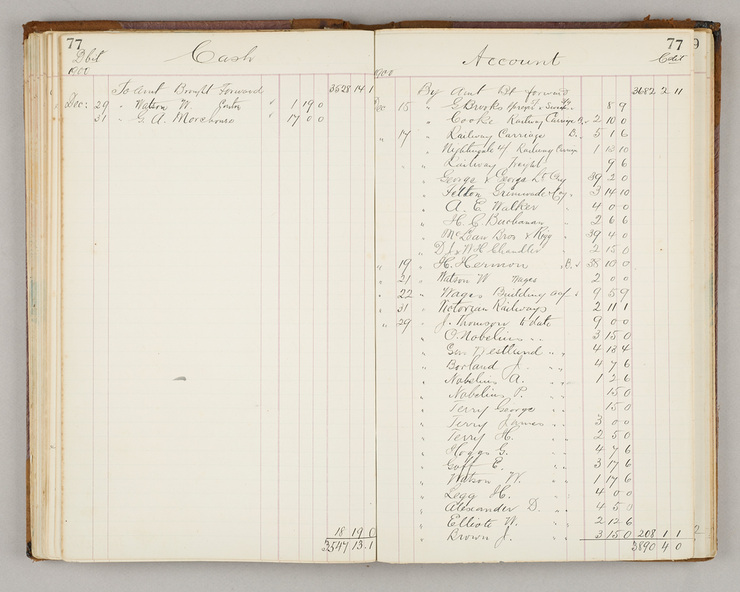 77
Debit
Cash
1900
To Amt Brought Forward 3628 14 1
Dec: 29 " Watson W. Contra 1 19 0
31 " G. A. Morehouse 17 0 0
18 19 0
3547 13 1
77
9
Account
Credit
1900
By Amt bt forward 3682 2 11
Dec 15 " G Brooks 8 9
" Cooke Railway Carriage 2 10 0
" 17 " Railway Carriage 5 1 6
" Nightingale Railway Carriage 1 10
" Railway Freight 9 6
" George & George Lt Coy 39 2 0
" Felton Grimwade & Coy 3 14 10
" A. E. Walker 4 0 0
" H. C. Buchanan 2 6 6
" McLean Bros & Rigg 39 4 0
" D. & W. H. Chandler 2 15 0
" 19 " H. Hermon 38 10 0
" 21 " Watson W Wages 2 0 0
" 22 " Wages Building 9 5 9
" 31 " Victorian Railways 2 11 1
" 29 " J. Thomson to date 9 0 0
" C. Nobelius " " 3 15 0
" Geo Westlund " " 4 18 4
" Borland J. " " 4 7 6
" Nobelius A. " " 1 2 6
" Nobelius P. " " 15 0
" Terry George " " 15 0
" Terry James " " 3 0 0
" Terry H. " " 2 5 0
" Hogg G. " " 4 7 6
" Goff E. " " 3 17 6
" Watson W. " " 1 17 6
" Legg H. " " 4 0 0
" Alexander D. " " 4 5 0
" Elliott W. " " 2 12 6
" Brown J. " " 3 15 0 208 1 1
3890 4 0